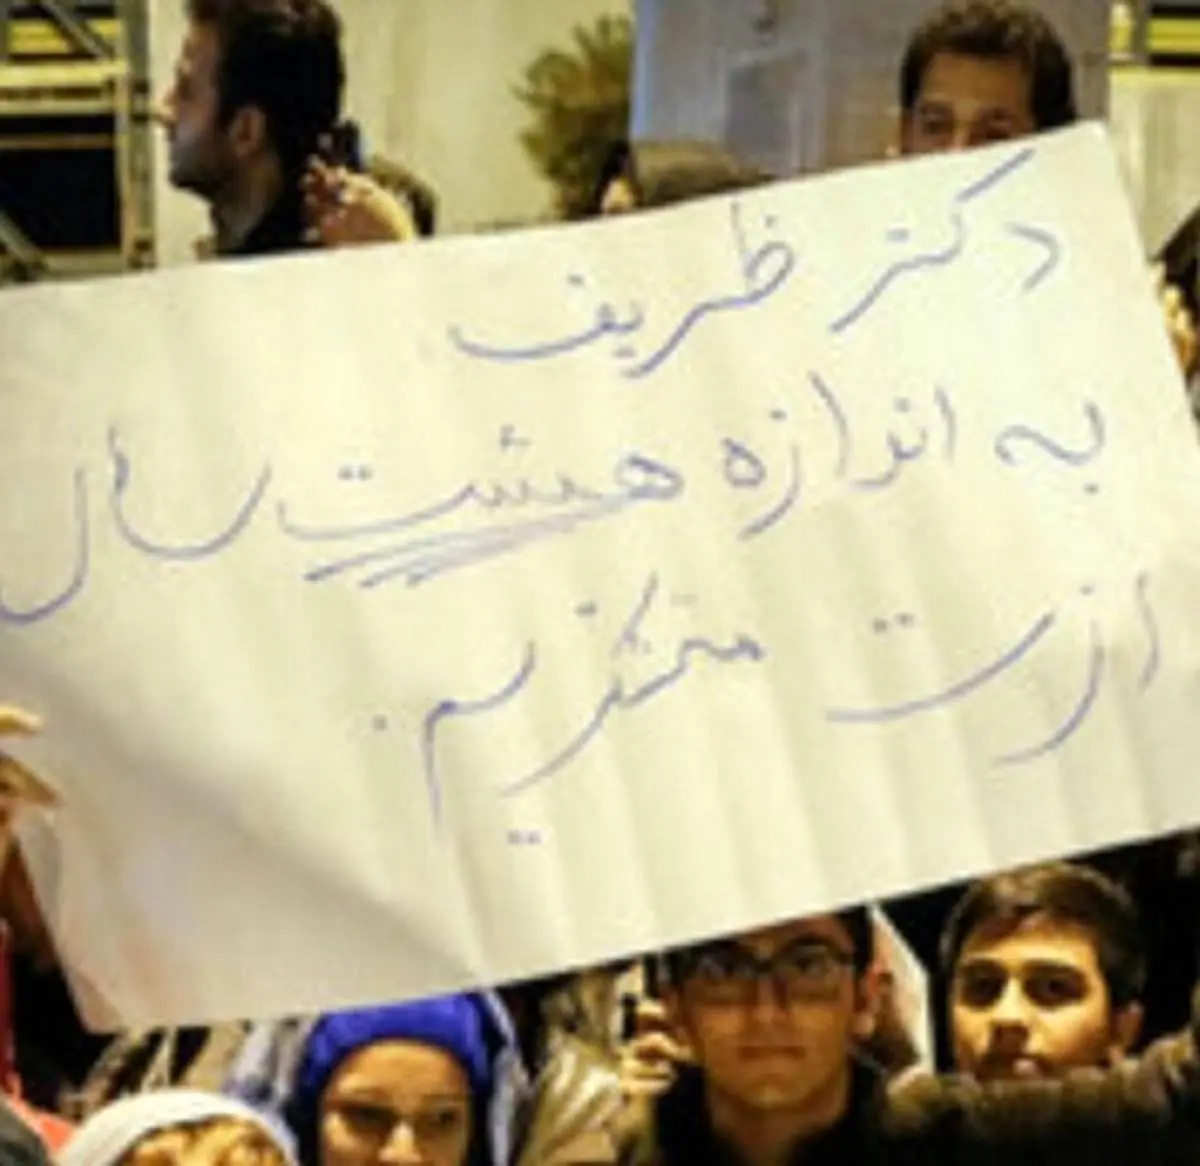 دکتر ظریف
به اندازه هشت سال
ازت متشکریم.